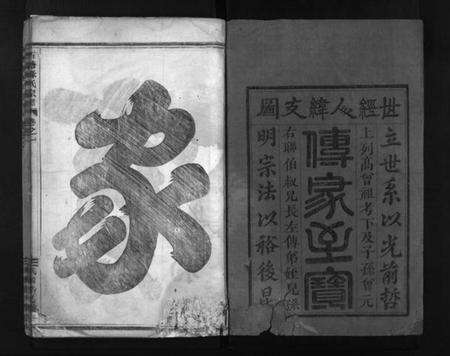 世經人緯支圖
立世系以光前哲
上列高曾祖考下及子孫曾元
傳家至寶
右聯伯叔兄長左傳弟姪兒孫
明宗法以裕後昆
家